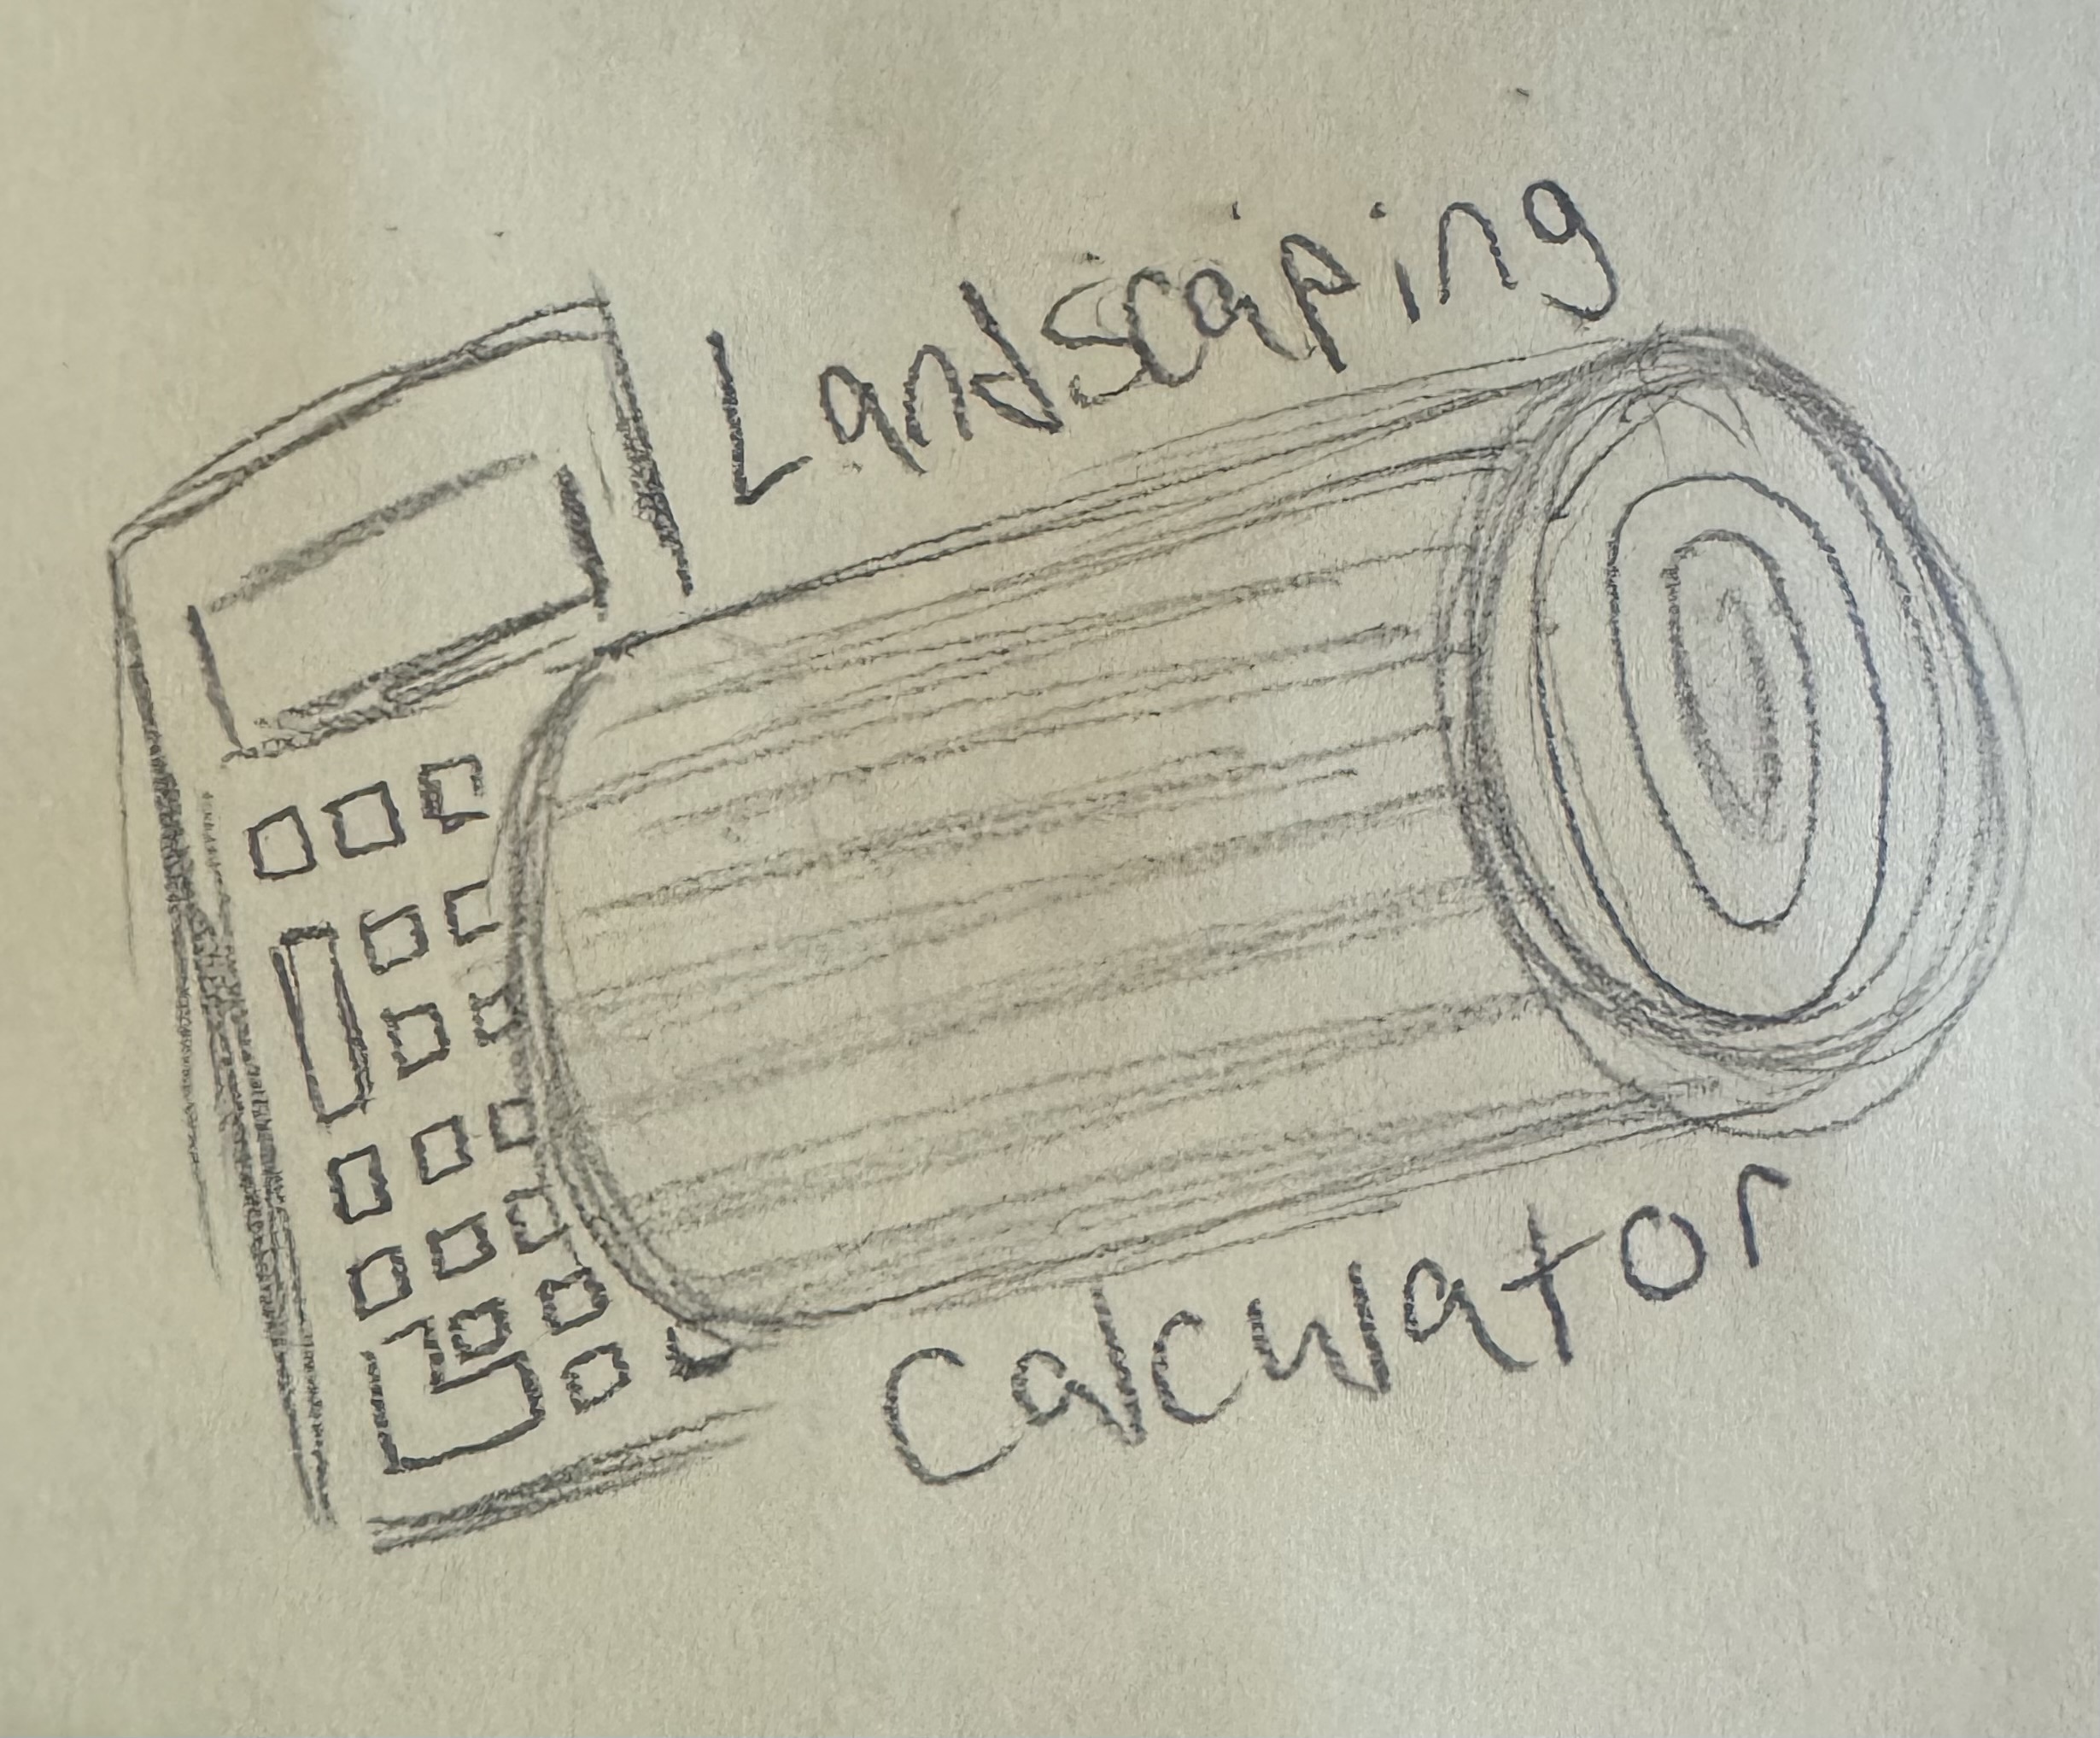 Landscaping
Calculator